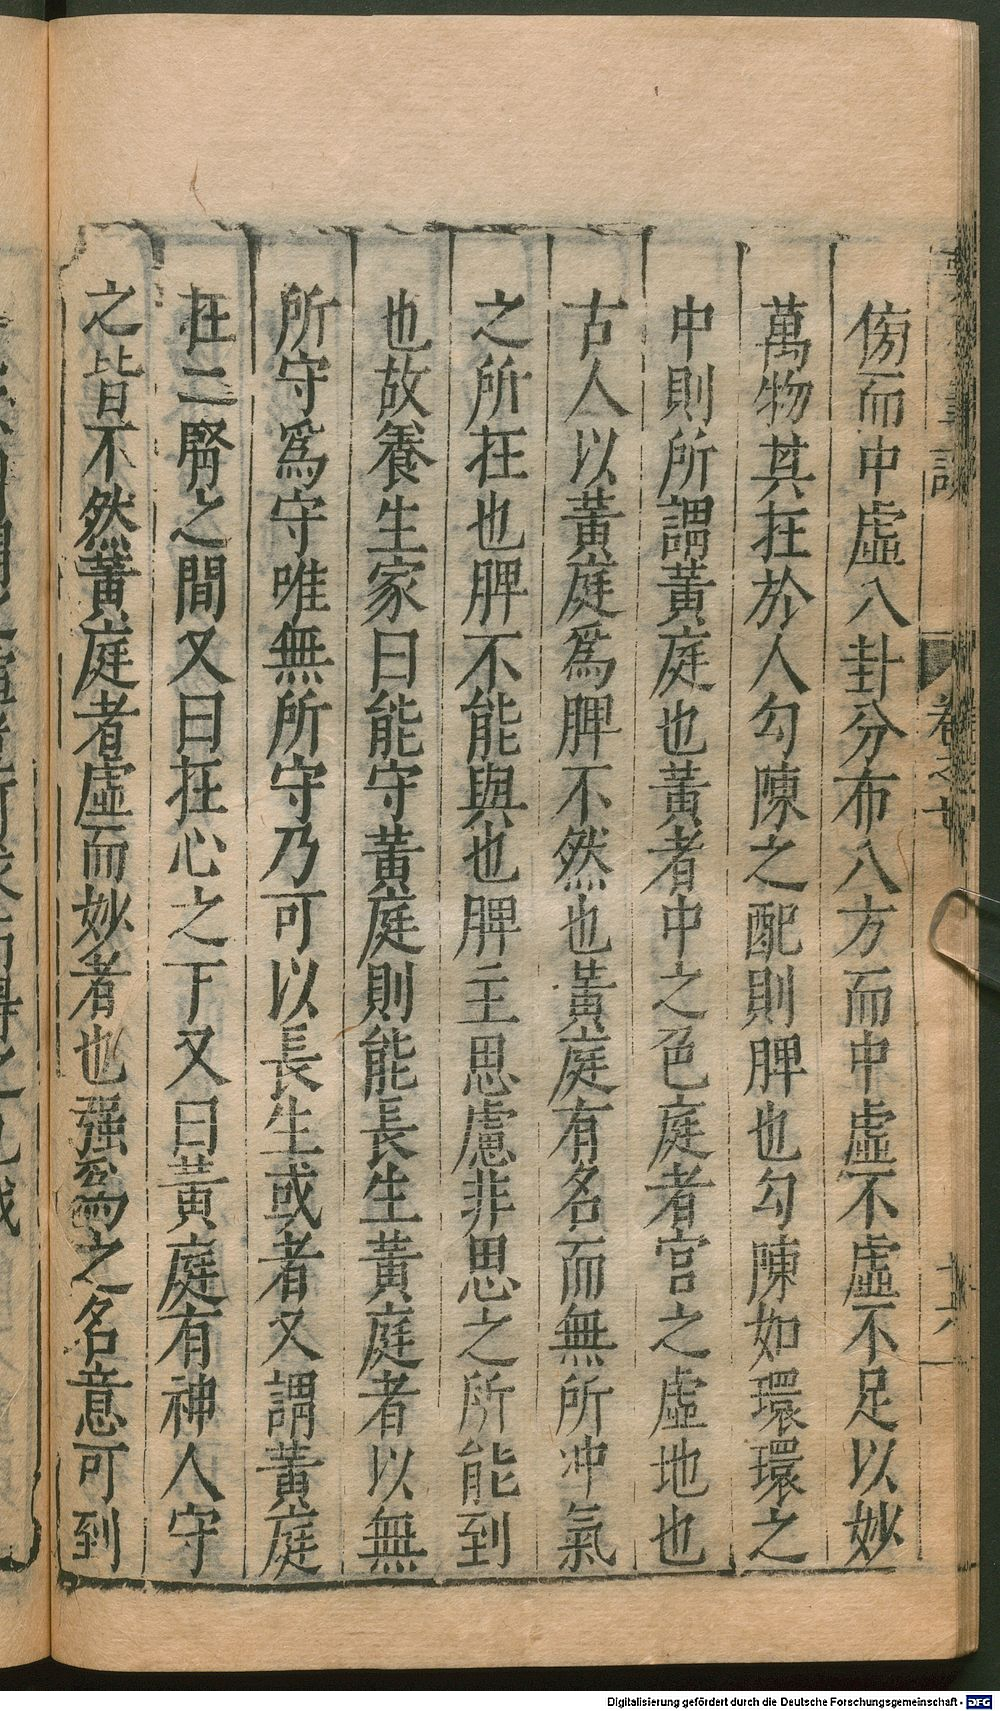 傍而中虛八卦分布八方而中虛不虛不足以妙
萬物其在於人勾陳之配則脾也勾陳如環環之
中則所謂黃庭也黃者中之色庭者宮之虛地也
古人以黃庭爲脾不然也黃庭有名而無所冲氣
之所在也脾不能與也脾主思慮非思之所能到
也故養生家曰能守黃庭則能長生黃庭者以無
所守爲守唯無所守乃可以長生或者又謂黃庭
在二腎之間又曰在心之下又曰黃庭有神人守
之皆不然黃庭者虛而妙者也强爲之名意可到
卷之
Digitalisierung gefördert durch die Deutsche Forschungsgemeinschaft - DFG